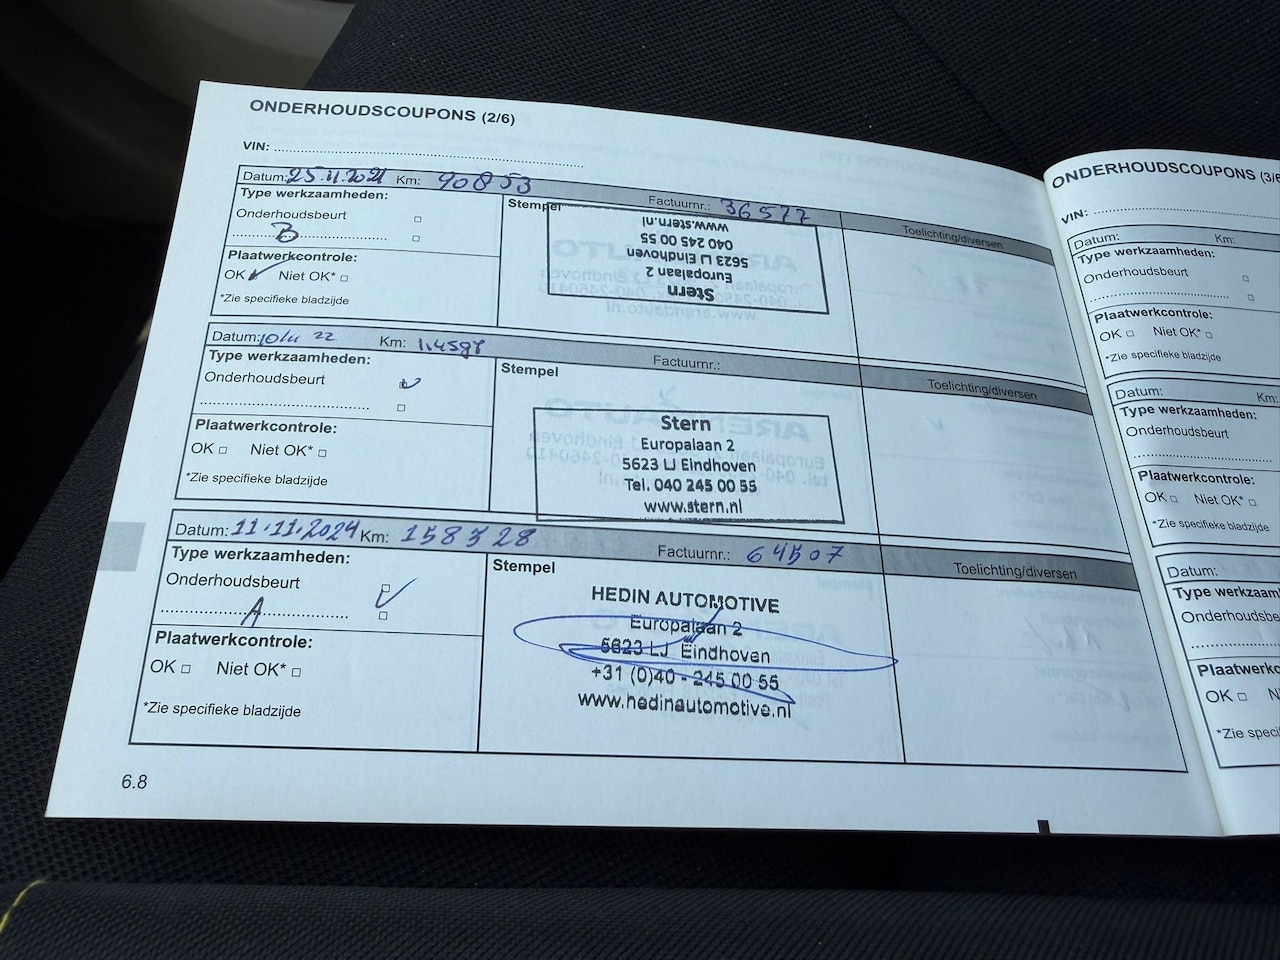 ONDERHOUDSCOUPONS (2/6)
VIN:
Datum: 25.11.2021 Km: 90853 Factuurnr.: 36577
Type werkzaamheden:
Stempel
Toelichting/diversen
Onderhoudsbeurt
B
Plaatwerkcontrole:
OK Niet OK*
*Zie specifieke bladzijde
Stern
Europalaan 2
5623 LJ Eindhoven
040 245 00 55
www.stern.nl
Datum: 22 Km: Factuurnr.:
Type werkzaamheden:
Stempel
Toelichting/diversen
Onderhoudsbeurt
Plaatwerkcontrole:
OK Niet OK*
*Zie specifieke bladzijde
Stern
Europalaan 2
5623 LJ Eindhoven
Tel. 040 245 00 55
www.stern.nl
Datum: 11.11.2024 Km: 158328 Factuurnr.: 64507
Type werkzaamheden:
Stempel
Toelichting/diversen
Onderhoudsbeurt
A
Plaatwerkcontrole:
OK Niet OK*
*Zie specifieke bladzijde
HEDIN AUTOMOTIVE
Europalaan 2
5623 LJ Eindhoven
+31 (0)40 - 245 00 55
www.hedinautomotive.nl
6.8
ONDERHOUDSCOUPONS (3/6
VIN:
Datum: Km:
Type werkzaamheden:
Onderhoudsbeurt
Plaatwerkcontrole:
OK Niet OK*
*Zie specifieke bladzijde
Datum: Km:
Type werkzaamheden:
Onderhoudsbeurt
Plaatwerkcontrole:
OK Niet OK*
*Zie specifieke bladzijde
Datum:
Type werkzaam
Onderhoudsbe
Plaatwerkc
OK N
*Zie speci